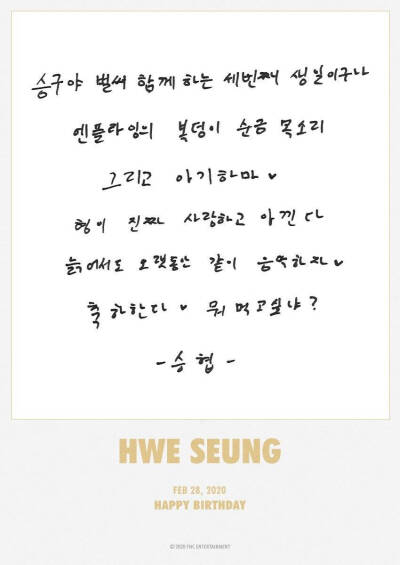 승구야 벌써 함께 하는 세번째 생일이구나
엔플라잉의 복덩이 순금 목소리
그리고 아기하마 ♥
형이 진짜 사랑하고 아낀다
늙어서도 오랫동안 같이 음악하자 ♥
축하한다 ♥ 뭐 먹고싶냐?
- 승협 -
HWE SEUNG
FEB 28, 2020
HAPPY BIRTHDAY
© 2020 FNC ENTERTAINMENT